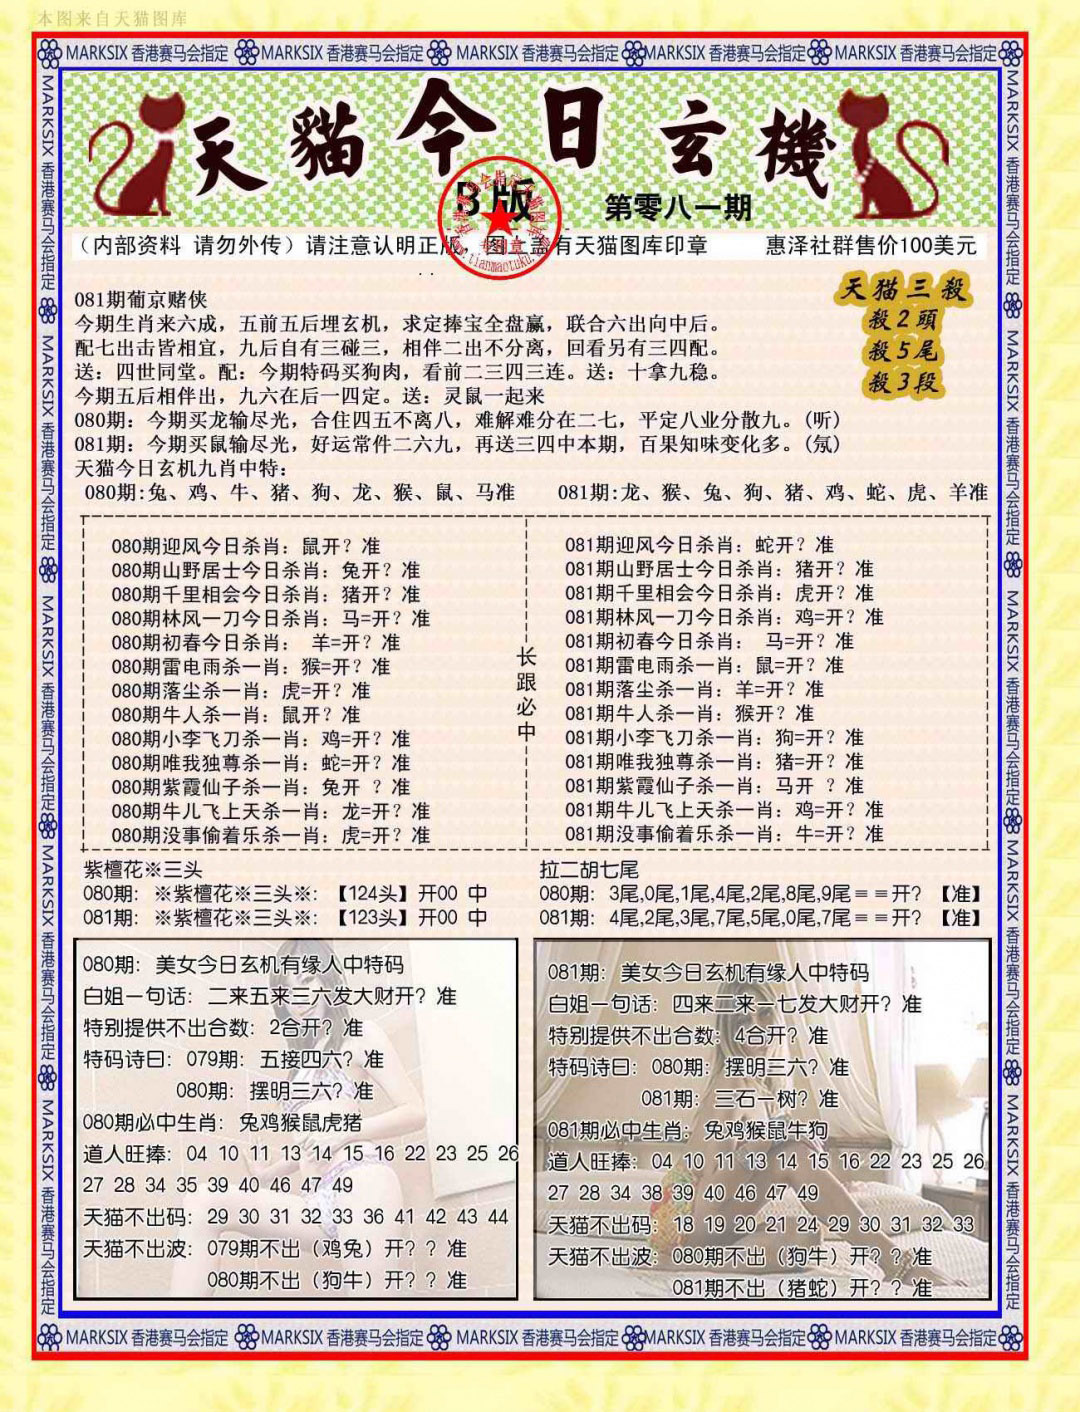 本图来自天猫图库
MARKSIX 香港赛马会指定 MARKSIX 香港赛马会指定 MARKSIX 香港赛马会指定 MARKSIX 香港赛马会指定 MARKSIX 香港赛马会指定
MARKSIX 香港赛马会指定 MARKSIX 香港赛马会指定 MARKSIX 香港赛马会指定 MARKSIX 香港赛马会指定 MARKSIX 香港赛马会指定
天貓今日玄機
B版
第零八一期
（内部资料 请勿外传）请注意认明正版，图上盖有天猫图库印章
惠泽社群售价100美元
天猫三殺
殺2頭
殺5尾
殺3段
081期葡京赌侠
今期生肖来六成，五前五后埋玄机，求定捧宝全盘赢，联合六出向中后。
配七出击皆相宜，九后自有三碰三，相伴二出不分离，回看另有三四配。
送：四世同堂。配：今期特码买狗肉，看前二三四三连。送：十拿九稳。
今期五后相伴出，九六在后一四定。送：灵鼠一起来
080期：今期买龙输尽光，合住四五不离八，难解难分在二七，平定八业分散九。(听)
081期：今期买鼠输尽光，好运常件二六九，再送三四中本期，百果知味变化多。(氛)
天猫今日玄机九肖中特：
080期:兔、鸡、牛、猪、狗、龙、猴、鼠、马准
081期:龙、猴、兔、狗、猪、鸡、蛇、虎、羊准
080期迎风今日杀肖：鼠开？准
080期山野居士今日杀肖：兔开？准
080期千里相会今日杀肖：猪开？准
080期林风一刀今日杀肖：马=开？准
080期初春今日杀肖： 羊=开？准
080期雷电雨杀一肖：猴=开？准
080期落尘杀一肖：虎=开？准
080期牛人杀一肖：鼠开？准
080期小李飞刀杀一肖：鸡=开？准
080期唯我独尊杀一肖：蛇=开？准
080期紫霞仙子杀一肖：兔开 ？准
080期牛儿飞上天杀一肖：龙=开？准
080期没事偷着乐杀一肖：虎=开？准
长跟必中
081期迎风今日杀肖：蛇开？准
081期山野居士今日杀肖：猪开？准
081期千里相会今日杀肖：虎开？准
081期林风一刀今日杀肖：鸡=开？准
081期初春今日杀肖： 马=开？准
081期雷电雨杀一肖：鼠=开？准
081期落尘杀一肖：羊=开？准
081期牛人杀一肖：猴开？准
081期小李飞刀杀一肖：狗=开？准
081期唯我独尊杀一肖：猪=开？准
081期紫霞仙子杀一肖：马开 ？准
081期牛儿飞上天杀一肖：鸡=开？准
081期没事偷着乐杀一肖：牛=开？准
紫檀花※三头
080期：※紫檀花※三头※：【124头】开00 中
081期：※紫檀花※三头※：【123头】开00 中
拉二胡七尾
080期：3尾,0尾,1尾,4尾,2尾,8尾,9尾＝＝开？【准】
081期：4尾,2尾,3尾,7尾,5尾,0尾,7尾＝＝开？【准】
080期：美女今日玄机有缘人中特码
白姐一句话：二来五来三六发大财开？准
特别提供不出合数：2合开？准
特码诗曰：079期：五接四六？准
080期：摆明三六？准
080期必中生肖：兔鸡猴鼠虎猪
道人旺捧：04 10 11 13 14 15 16 22 23 25 26
27 28 34 35 39 40 46 47 49
天猫不出码：29 30 31 32 33 36 41 42 43 44
天猫不出波：079期不出（鸡兔）开？？准
080期不出（狗牛）开？？准
081期：美女今日玄机有缘人中特码
白姐一句话：四来二来一七发大财开？准
特别提供不出合数：4合开？准
特码诗曰：080期：摆明三六？准
081期：三石一树？准
081期必中生肖：兔鸡猴鼠牛狗
道人旺捧：04 10 11 13 14 15 16 22 23 25 26
27 28 34 38 39 40 46 47 49
天猫不出码：18 19 20 21 24 29 30 31 32 33
天猫不出波：080期不出（狗牛）开？？准
081期不出（猪蛇）开？？准
MARKSIX 香港赛马会指定 MARKSIX 香港赛马会指定 MARKSIX 香港赛马会指定 MARKSIX 香港赛马会指定 MARKSIX 香港赛马会指定
MARKSIX 香港赛马会指定 MARKSIX 香港赛马会指定 MARKSIX 香港赛马会指定 MARKSIX 香港赛马会指定 MARKSIX 香港赛马会指定